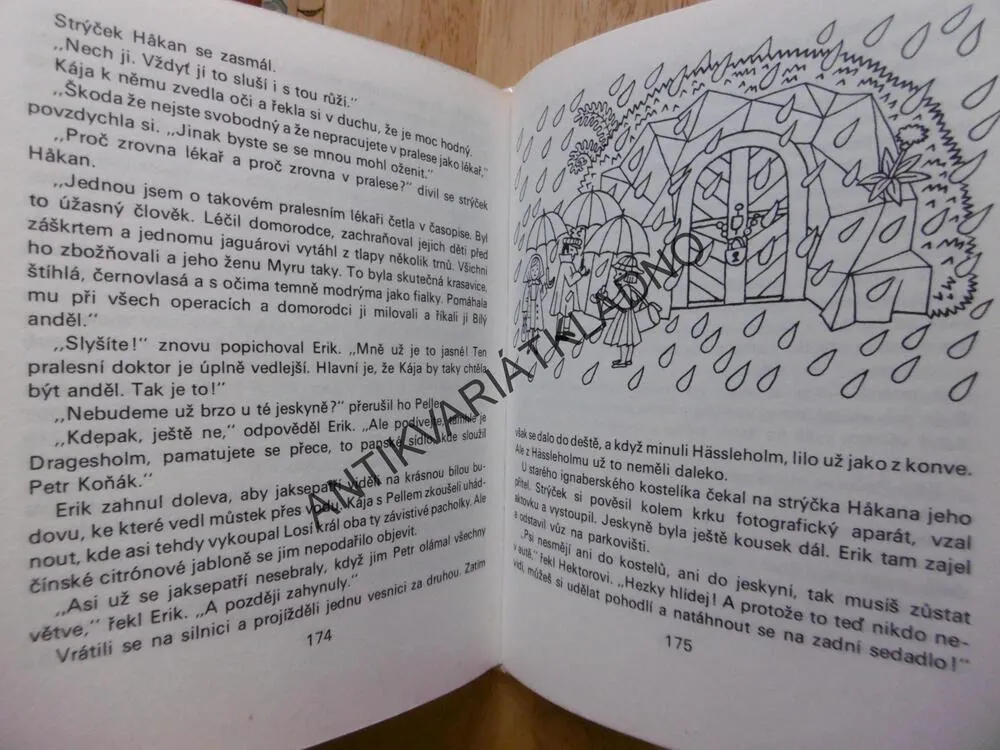 Strýček Håkan se zasmál.
„Nech ji. Vždyť jí to sluší i s tou růží."
Kája k němu zvedla oči a řekla si v duchu, že je moc hodný.
„Škoda že nejste svobodný a že nepracujete v pralese jako lékař,"
povzdychla si. „Jinak byste se se mnou mohl oženit."
„Proč zrovna lékař a proč zrovna v pralese?" divil se strýček
Håkan.
„Jednou jsem o takovém pralesním lékaři četla v časopise. Byl
to úžasný člověk. Léčil domorodce, zachraňoval jejich děti před
záškrtem a jednomu jaguárovi vytáhl z tlapy několik trnů. Všichni
ho zbožňovali a jeho ženu Myru taky. To byla skutečná krasavice,
štíhlá, černovlasá a s očima temně modrýma jako fialky. Pomáhala
mu při všech operacích a domorodci ji milovali a říkali jí Bílý
anděl."
„Slyšíte!" znovu popichoval Erik. „Mně už je to jasné! Ten
pralesní doktor je úplně vedlejší. Hlavní je, že Kája by taky chtěla
být anděl. Tak je to!"
„Nebudeme už brzo u té jeskyně?" přerušil ho Pelle.
„Kdepak, ještě ne," odpověděl Erik. „Ale podívejte, tamhle je
Dragesholm, pamatujete se přece, to panské sídlo, kde sloužil
Petr Koňák."
Erik zahnul doleva, aby jaksepatří viděli na krásnou bílou bu-
dovu, ke které vedl můstek přes vodu. Kája s Pellem zkoušeli uhád-
nout, kde asi tehdy vykoupal Losí král oba ty závistivé pacholky. Ale
čínské citrónové jabloně se jim nepodařilo objevit.
„Asi už se jaksepatří nesebraly, když jim Petr olámal všechny
větve," řekl Erik. „A později zahynuly."
Vrátili se na silnici a projížděli jednu vesnici za druhou. Zatím
174
však se dalo do deště, a když minuli Hässleholm, lilo už jako z konve.
Ale z Hässleholmu už to neměli daleko.
U starého ignaberského kostelíka čekal na strýčka Håkana jeho
přítel. Strýček si pověsil kolem krku fotografický aparát, vzal
aktovku a vystoupil. Jeskyně byla ještě kousek dál. Erik tam zajel
a odstavil vůz na parkovišti.
„Psi nesmějí ani do kostelů, ani do jeskyní, tak musíš zůstat
v autě," řekl Hektorovi. „Hezky hlídej! A protože to teď nikdo ne-
vidí, můžeš si udělat pohodlí a natáhnout se na zadní sedadlo!"
175
ANTIKVARIÁTKLADNO